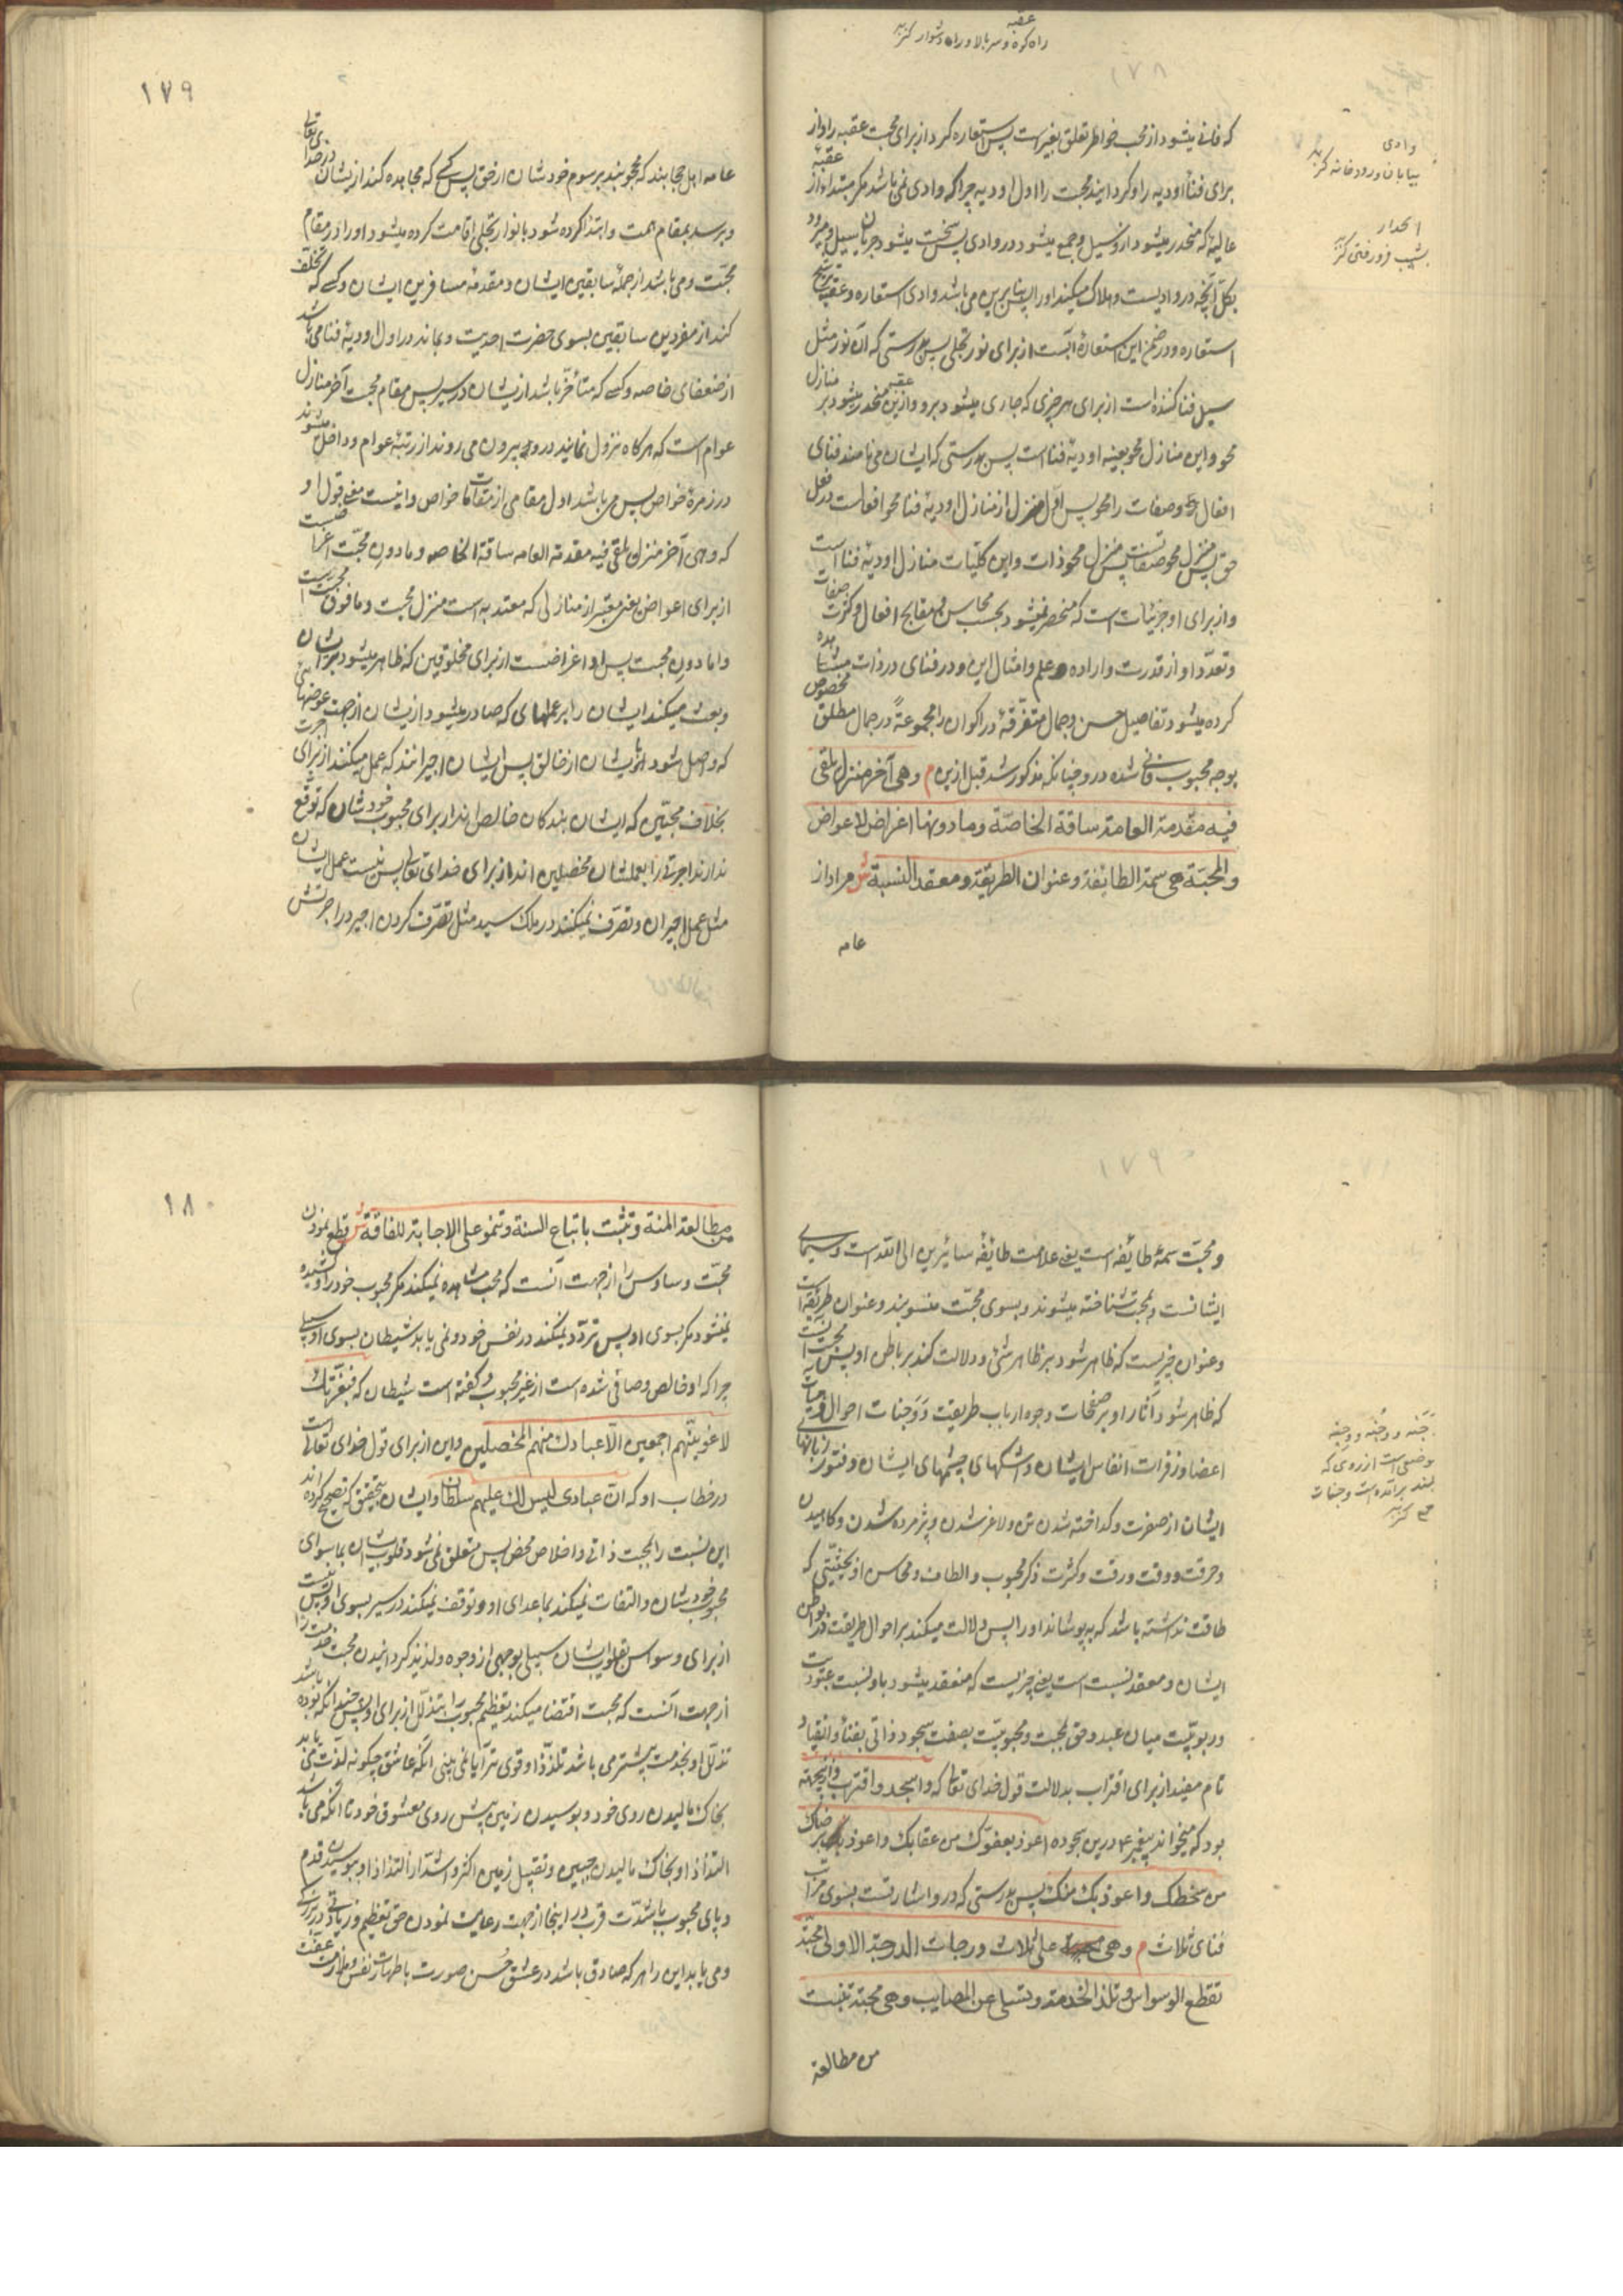 عقبه
راه کوه و سر بالا و راه دشوار کنز
۱۷۸
که فانی میشود از محب خواطر تعلق بغیرست پس استعاره کرد از برای محبت عقبه را و از
برای فنا اودیه را و کردانید محبت را اول اودیه چرا که وادی نمی باشد مکر مبتدا از عقبهٔ
عالیه که منحدر میشود ازو سیل و جمع میشود در وادی پس سخت میشود جریان سیل و میرود
بکل آنچه در وادیست و هلاک میکند او را پس بنابرین می باشد وادی استعاره و عقبه ترشیح
استعاره و در ضمن این استعاره است از برای نور تجلی پس بدرستی که آن نور مثل
سیل فنا کننده است از برای هر چیزی که جاری میشود برو و ازین عقبه منحدر میشود بر منازل
محو و این منازل محو بعینه اودیهٔ فنا است پس بدرستی که ایشان می نامند فنای
افعال و صفات را محو پس اول منزل از منازل اودیهٔ فنا محو افعالست در فعل
حق پس منزل محو صفاتست پس منزل محو ذات و این کلیات منازل اودیهٔ فنا است
و از برای او جزئیات است که منحصر نمیشود بحسب محاسن و مقابح افعال و کثرت صفات
و تعدد او از قدرت و اراده و علم و امثال این و در فنای در ذات مشاهده
کرده میشود تفاصیل حسن و جمال متفرقهٔ در اکوان را مجموعةً در جمال مطلق مخصوص
بوجه محبوب فانی شده درو چنانکه مذکور شد قبل ازین م وهی آخر منزل تلقی
فیه مقدمة العامة ساقة الخاصة وما دونها اغراض لاعواض
والمحبة هی سمة الطایفة وعنوان الطریقة ومعقد النسبة ش مراد از
عامه
وادی
بیابان و رودخانه کنز
انحدار
بشیب فرو رفتن کنز
۱۷۹
عامه اهل حجابند که محجوبند برسوم خودشان از حق پس کسی که مجاهده کند ازیشان در خدای تعالی
و برسد بمقام همت و ابتدا کرده شود بانوار تجلی اقامت کرده میشود او را در مقام
محبت و می باشد از جملهٔ سابقین ایشان و مقدمهٔ مسافرین ایشان و کسی که تخلف
کند از مفردین سابقین بسوی حضرت احدیت و بماند در اول اودیهٔ فنا می باشد
از ضعفای خاصه و کسی که متأخر باشد ازیشان در سیر پس مقام محبت آخر منازل
عوام است که هر کاه نزول نمایند درو بیرون می روند از رتبهٔ عوام و داخل میشوند
در زمرهٔ خواص پس می باشد اول مقامی از مقامات خواص و اینست معنی قول او
که وهی آخر منزل تلقی فیه مقدمة العامه ساقة الخاصه و مادون محبت اغراضست
از برای اعواض یعنی معتبر از منازلی که معتد به است منزل محبت و ما فوق محبت است
و اما دون محبت پس او اغراضست از برای مخلوقین که ظاهر میشود بریشان
و بعث میکند ایشان را بر عملهای که صادر میشود ازیشان از جهت عوضهای
که واصل شود بایشان از خالق پس ایشان اجیرانند که عمل میکنند از برای اجرت
بخلاف محبین که ایشان بندکان خالص اند از برای محبوب خودشان که توقع
ندارند اجرتی را بعملشان مخلصین اند از برای خدای تعالی پس نیست عمل ایشان
مثل عمل اجیران و تصرف نمیکنند در ملک سید مثل تصرف کردن اجیر در اجرتش
۱۷۹
و محبت سمهٔ طائفه است یعنی علامت طائفهٔ سائرین الی الله است و سیمای
ایشانست و بمحبت شناخته میشوند و بسوی محبت منسوبند و عنوان طریقه است
و عنوان چیزیست که ظاهر شود بر ظاهر شئ و دلالت کند بر باطن او پس محبت آنست
که ظاهر شود آثار او بر صفحات وجوه ارباب طریقت و وجنات احوال و هیأت
اعضا و زفرات انفاس ایشان و اشکهای چشمهای ایشان و فتور زبانهای
ایشان از صفرت و کداخته شدن تن و لاغر شدن و پژمرده شدن و کاهیدن
و حرقت و دقت و رقت و کثرت ذکر محبوب و الطاف و محاسن او بحیثیتی که
طاقت نداشته باشد که بپوشاند او را پس دلالت میکند بر احوال طریقت در بواطن
ایشان و معقد نسبت است یعنی چیزیست که منعقد میشود باو نسبت عبودیت
و ربوبیت میان عبد و حق بمحبت و محبوبیت بصفت سجود ذاتی بفنا و انقیاد
تام مفید از برای اقتراب بدلالت قول خدای تعالی که واسجد واقترب و ازینجهته
بود که میخواند پیغمبر ع م درین سجود اعوذ بعفوک من عقابک واعوذ برضاک
من سخطک واعوذ بک منک پس بدرستی که درو اشارتست بسوی مراتب
فنای ثلاث م وهی علی ثلاث درجات الدرجة الاولی محبة
تقطع الوسواس وتلذ الخدمة وتسلی عن المصایب وهی محبة تنبت
من مطالعة
وَجنه و وُجنه و وِجنه
موضعی است از روی که
بلند برآمده است وجنات
ج کنز
۱۸۰
من مطالعة المنة وتثبت باتباع السنة وتنمو علی الاجابة للفاقة ش قطع نمودن
محبت وساوس را از جهت آنست که محب مشاهده نمیکند مکر محبوب خود را و کشیده
نمیشود مکر بسوی او پس تردد نمیکند در نفس خود و نمی یابد شیطان بسوی او سبیلی
چرا که او خالص و صافی شده است از غیر محبوب و کفته است شیطان که فبعزتک
لاغوینهم اجمعین الا عبادک منهم المخلصین و این از برای قول خدای تعالی است
در خطاب او که ان عبادی لیس لک علیهم سلطان و ایشان بتحقیق که تصحیح کرده اند
این نسبت را بمحبت ذاتی و اخلاص محض پس متعلق نمی شود قلوب ایشان بما سوای
محبوب خودشان و التفات نمیکنند بما عدای او و توقف نمیکنند در سیر بسوی او پس نیست
از برای وسواس بقلوب ایشان سبیلی بوجهی از وجوه و لذیذ کردانیدن محبت خدمت را
از جهت آنست که محبت اقتضا میکند تعظیم محبوب را بتذلل از برای او پس چندانکه بوده باشد
تذلل او بخدمت بیشتر می باشد تلذذ او قوی تر آیا نمی بینی آنکه عاشق چکونه لذت می یابد
بخاک مالیدن روی خود و بوسیدن زمین پیش روی معشوق خود تا آنکه می باشد
التذاذ او بخاک مالیدن جبین و تقبیل زمین اکثر و اشد از التذاذ او ببوسیدن قدم
و پای محبوب با شدت قرب در اینجا از جهت رعایت نمودن حق تعظیم و زیادتی در بزرکی
و می یابد این را هر که صادق باشد در عشق حسن صورت با طهارت نفس و ملازمت عفت